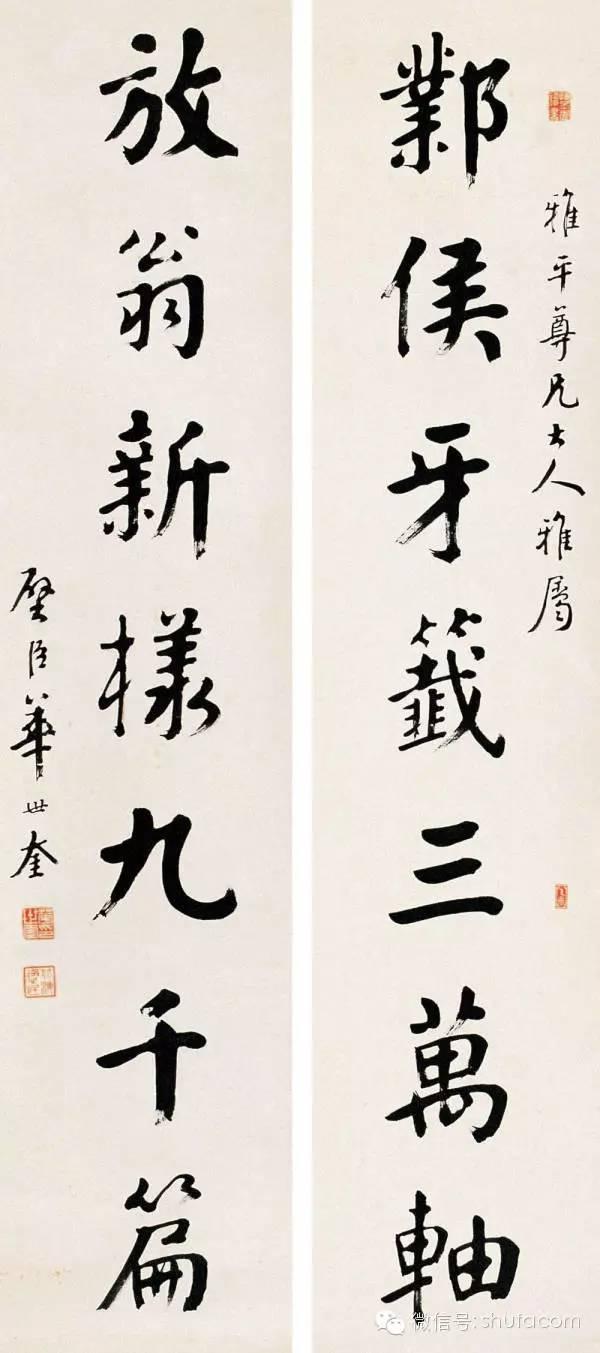 雅平尊兄大人雅屬
鄴侯牙籤三萬軸
放翁新樣九千篇
璧臣華世奎
微信号:shufacom